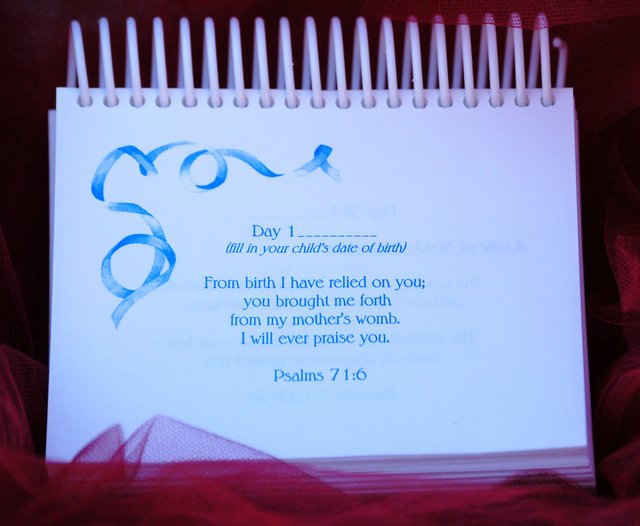 Day 1__________
(fill in your child's date of birth)
From birth I have relied on you;
you brought me forth
from my mother's womb.
I will ever praise you.
Psalms 71:6